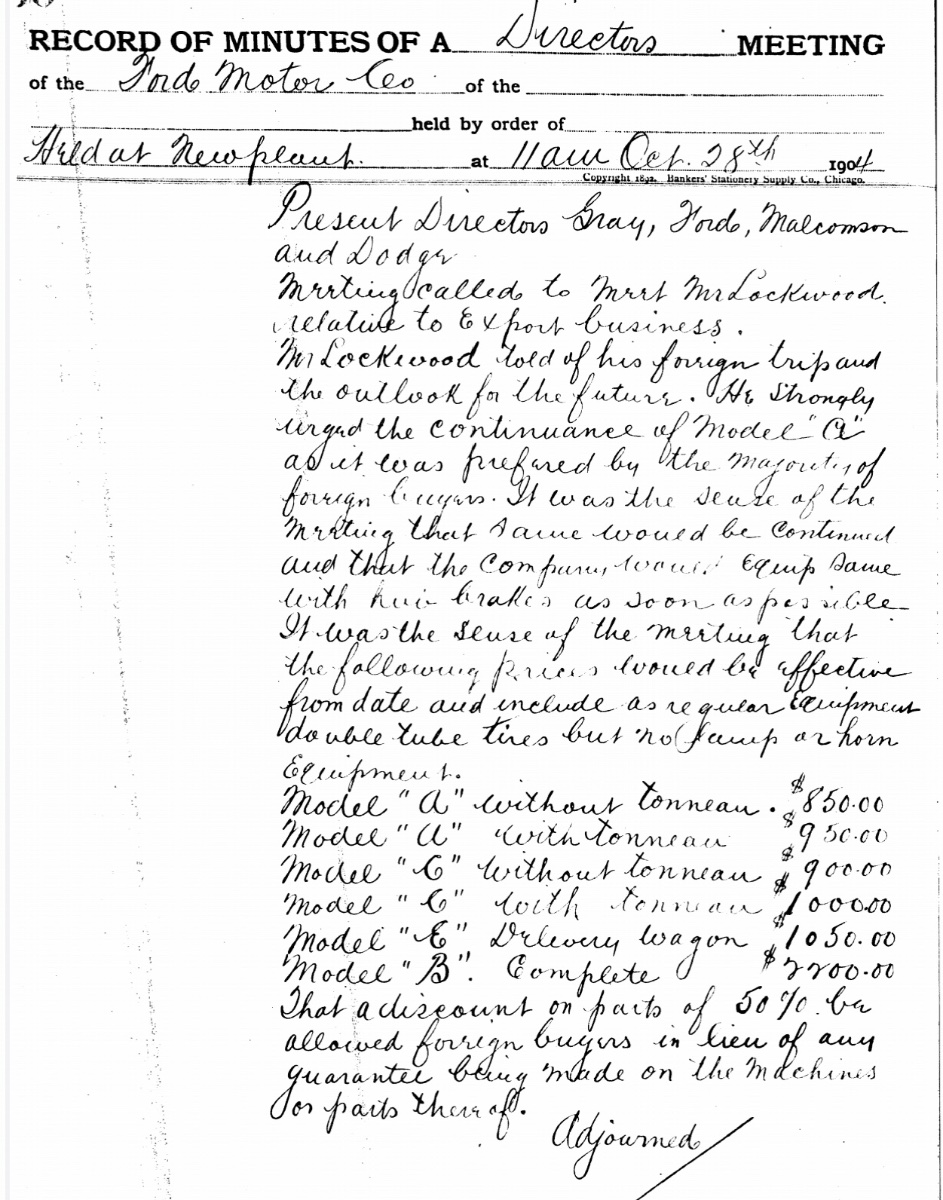 RECORD OF MINUTES OF A Directors MEETING
of the Ford Motor Co of the
held by order of
Held at New plant. at 11am Oct. 28th 1904
Copyright 1892. Bankers' Stationery Supply Co., Chicago.
Present Directors Gray, Ford, Malcomson
and Dodge
Meeting called to meet Mr Lockwood.
relative to Export business.
Mr Lockwood told of his foreign trip and
the outlook for the future. He Strongly
urged the continuance of Model "A"
as it was prefered by the majority of
foreign buyers. It was the sense of the
Meeting that same would be continued
and that the Company would Equip same
with hub brakes as soon as possible
It was the sense of the meeting that
the following prices would be effective
from date and include as regular Equipment
double tube tires but no lamp or horn
Equipment.
Model "A" without tonneau. $850.00
Model "A" with tonneau $950.00
Model "C" without tonneau $900.00
Model "C" with tonneau $1000.00
Model "E" Delivery wagon $1050.00
Model "B". Complete $2200.00
That a discount on parts of 50% be
allowed foreign buyers in lieu of any
guarantee being made on the Machines
or parts thereof.
Adjourned